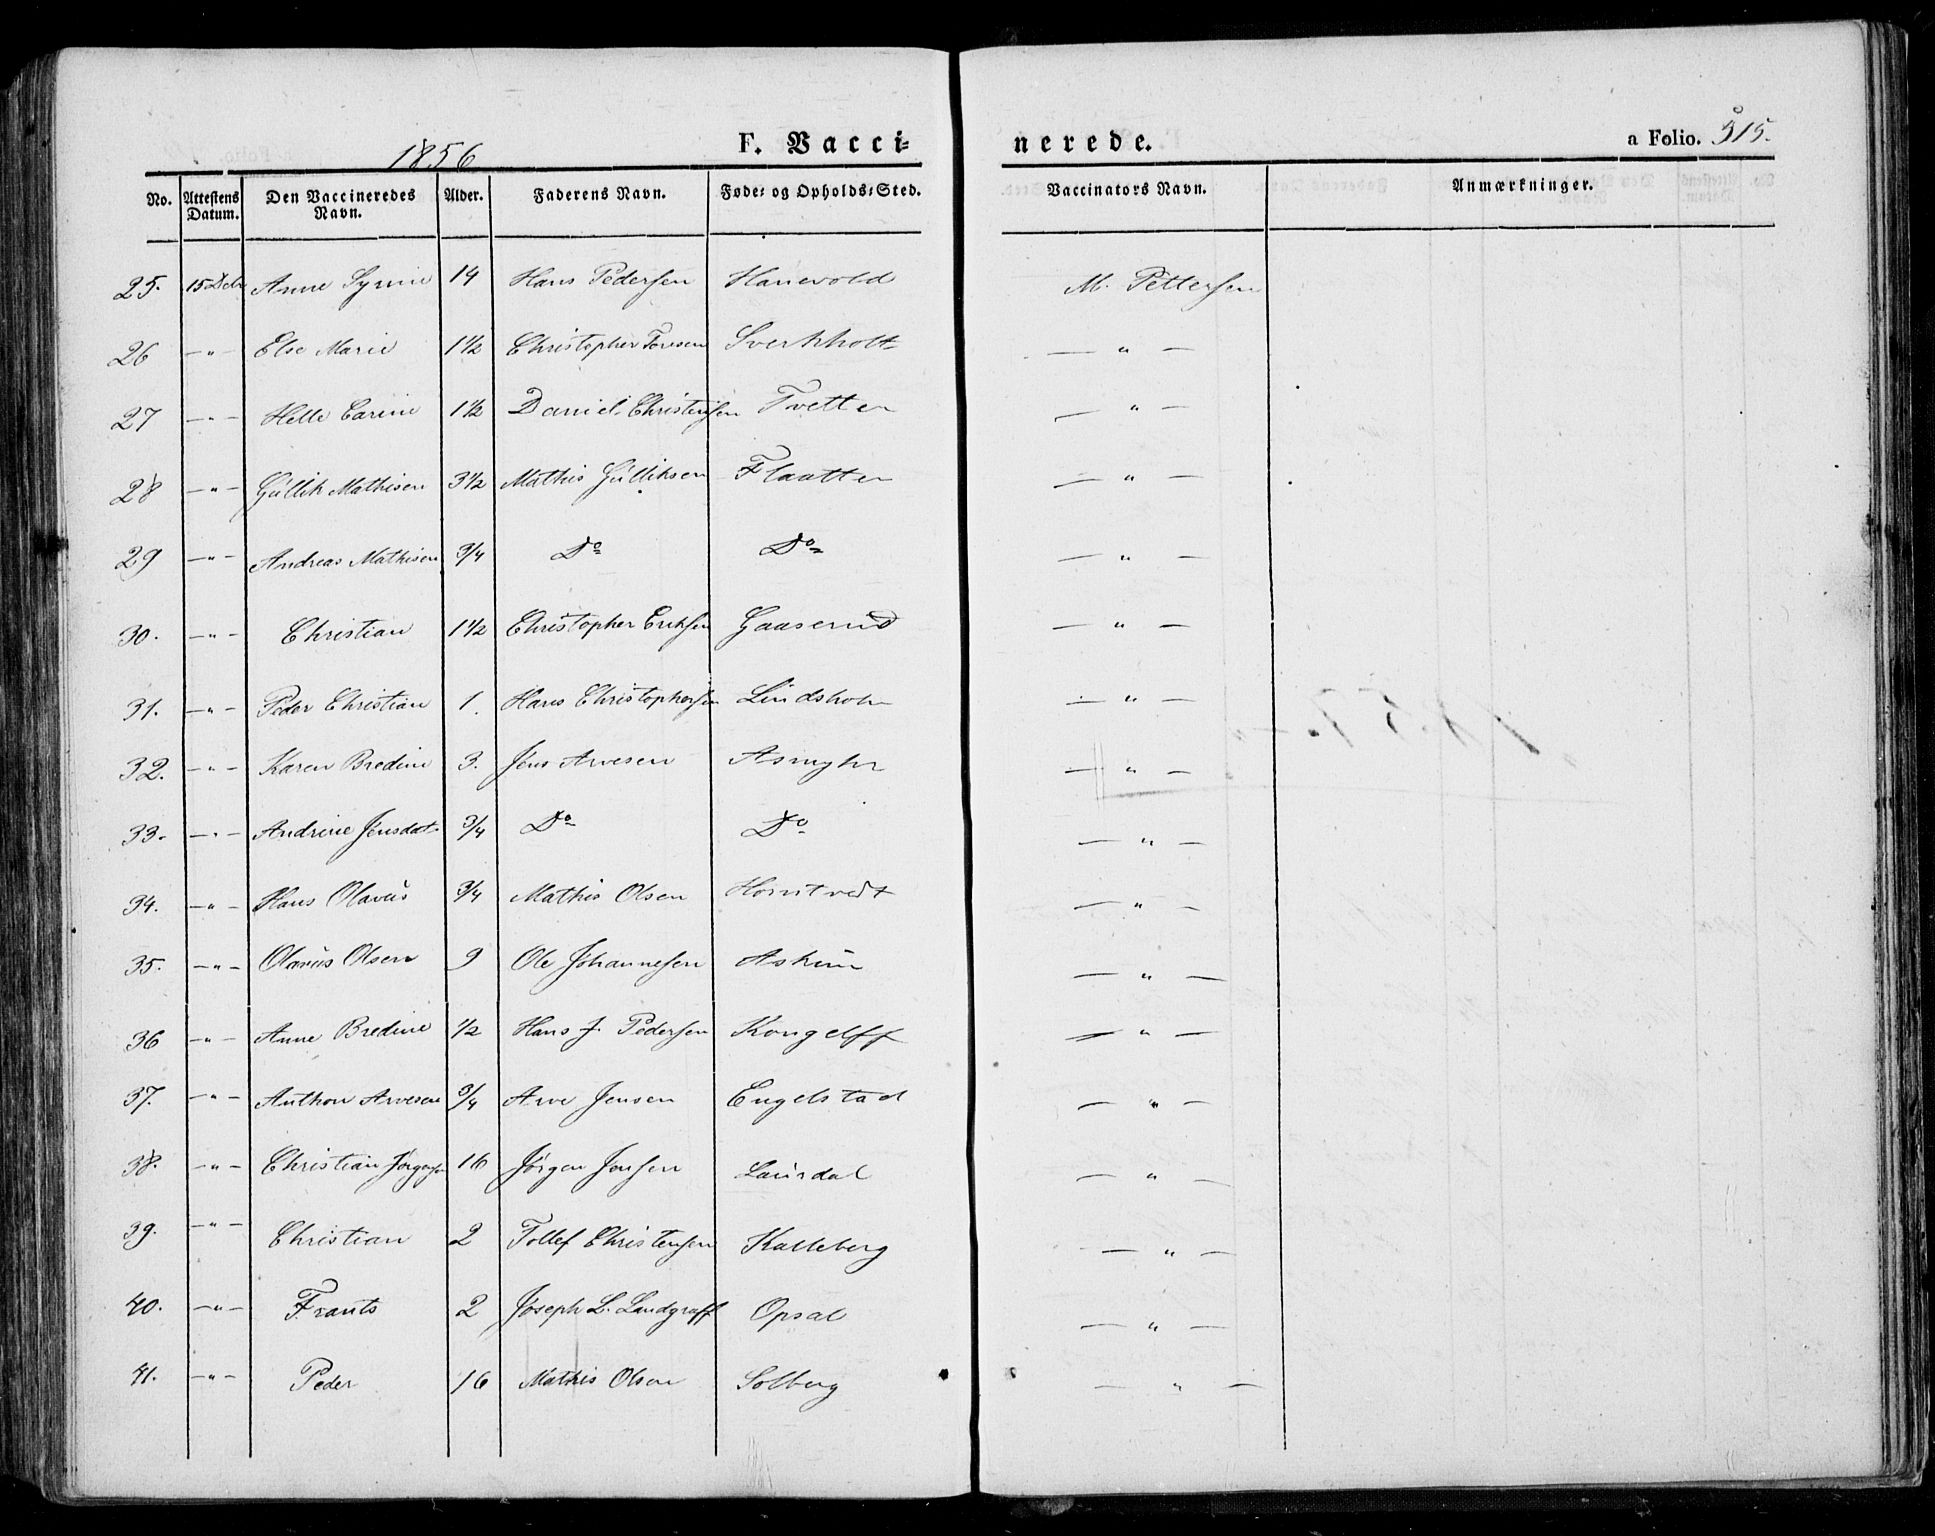 1856 F. Vacci= nerede. a Folio. 315.
No. Attestens Datum. Den Vaccineredes Navn. Alder. Faderens Navn. Føde= og Opholds=Sted. Vaccinators Navn. Anmærkninger.
25. 15 Debr Anne Syrine 14 Hans Pedersen Hanevold M. Pettersen
26 —"— Else Marie 1½ Christopher Toresen —"—
27 —"— Helle Carine 1½ Daniel Christensen Tvetten —"—
28 —"— Gúllik Mathisen 3½ Mathis Gúlliksen Flaatten —"—
29 —"— Andreas Mathisen 3/4 Do Do —"—
30. —"— Christian 1½ Christopher Eriksen Gaaserud —"—
31. —"— Peder Christian 1. Hans Christophersen Lindsholm —"—
32. —"— Karen Bredine 3. Jens Arvesen Asmyhr —"—
33. —"— Andrine Jensdatr 3/4 Do Do —"—
34. —"— Hans Olavús 3/4 Mathis Olsen Horntvedt —"—
35. —"— Olavús Olsen 9 Ole Johannesen Askim —"—
36 —"— Anne Bredine ½ Hans J. Pedersen Kongelff —"—
37. —"— Anthon Arvesen 3/4 Arve Jensen Engelstad —"—
38. —"— Christian Jørgensen 16 Jørgen Jensen Laúrdal —"—
39. —"— Christian 2 Tollef Christensen Kalleberg —"—
40. —"— Frants 2 Joseph L. Landgraff Opsal —"—
41. —"— Peder 16 Mathis Olsen Solberg —"—